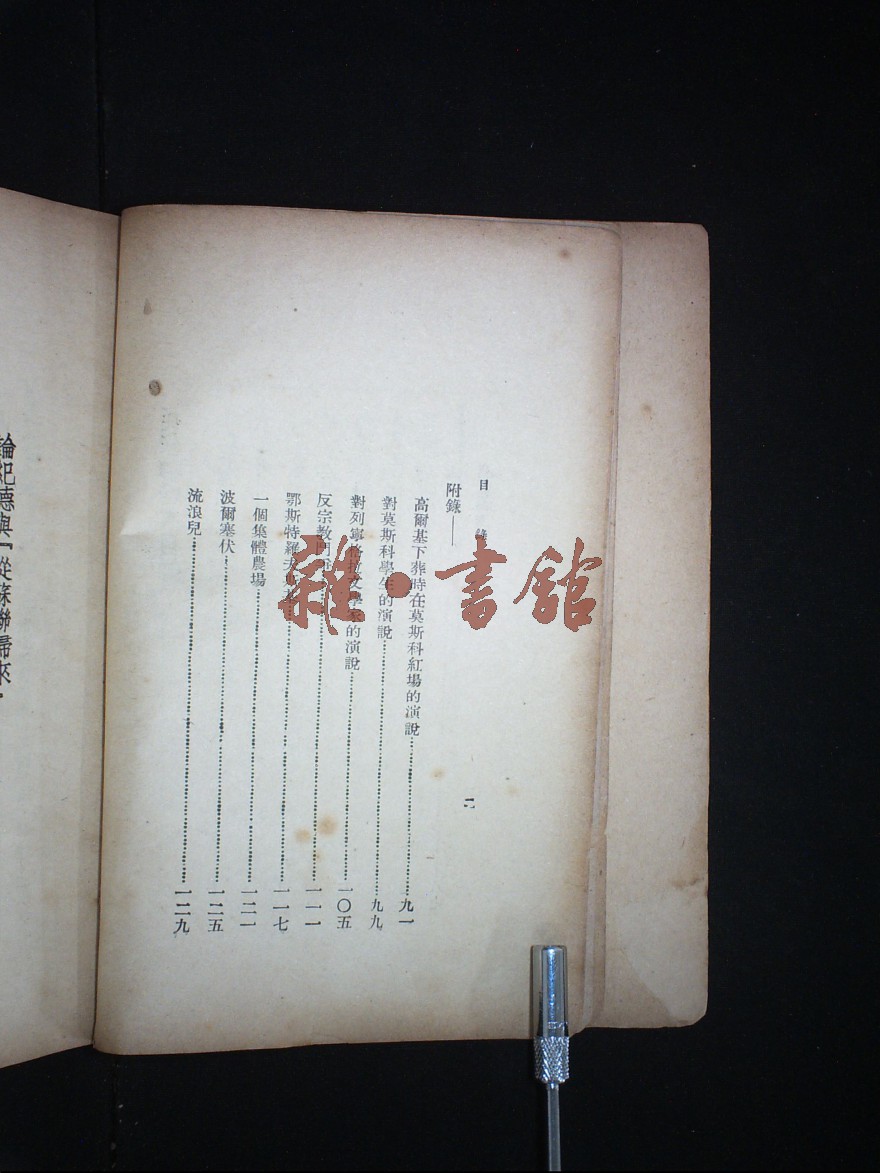 目 錄
二
附錄——
高爾基下葬時在莫斯科紅場的演說……九一
對莫斯科學生的演說……九九
對列寧格拉文學家的演說……一〇五
反宗教鬥爭……一一一
鄂斯特羅夫斯基……一一七
一個集體農場……一二一
波爾塞伏……一二五
流浪兒……一二九
論紀德與『從蘇聯歸來
雜·書館